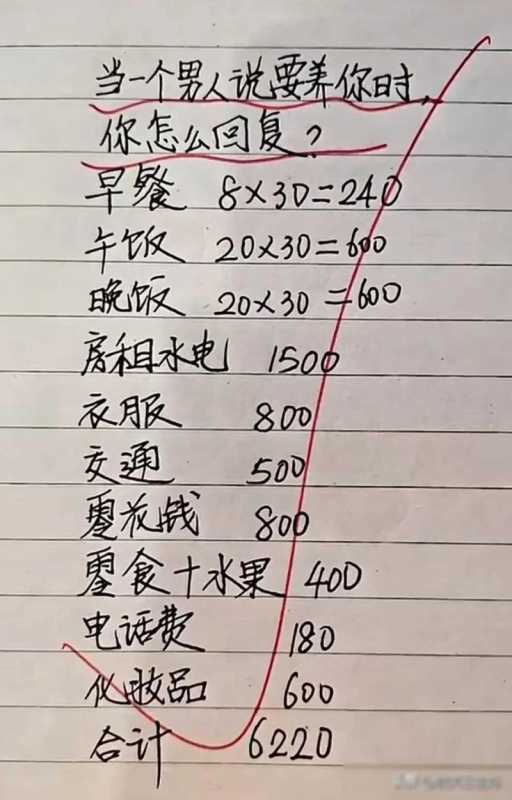 当一个男人说要养你时,
你怎么回复?
早餐 8×30=240
午饭 20×30=600
晚饭 20×30=600
房租水电 1500
衣服 800
交通 500
零花钱 800
零食+水果 400
电话费 180
化妆品 600
合计 6220